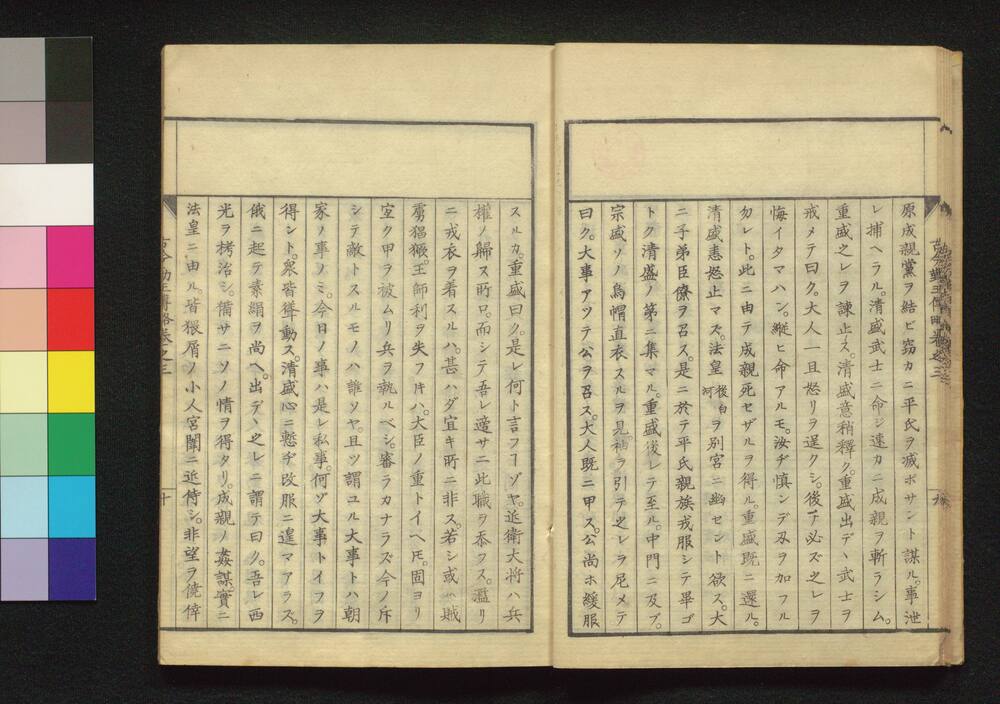 原成親黨ヲ結ビ窈カニ平氏ヲ滅ボサント謀ル。事泄
レ捕ヘラル。清盛武士ニ命ジ速カニ成親ヲ斬ラシム。
重盛之レヲ諫止ス。清盛意稍釋ク。重盛出デヽ武士ヲ
戒メテ曰ク。大人一旦怒リヲ逞クシ。後チ必ズ之レヲ
悔イタマハン。縱ヒ命アルモ。汝ヂ慎ンデ刄ヲ加フル
勿レト。此ニ由テ成親死セザルヲ得ル。重盛既ニ還ル。
清盛恚怒止マズ。法皇後白河ヲ別宮ニ幽セント欲ス。大
ニ子弟臣僚ヲ召ス。是ニ於テ平氏親族戎服シテ畢ゴ
トク清盛ノ第ニ集マル。重盛後レテ至ル。中門ニ及ブ。
宗盛ソノ烏帽直衣スルヲ見。袖ヲ引テ之レヲ尼メテ
曰ク。大事アツテ公ヲ召ス。大人既ニ甲ス。公尚ホ緩服
スルカ。重盛曰ク。是レ何ト言フヿゾヤ。近衛大将ハ兵
權ノ歸ス所ロ。而シテ吾レ適サニ此職ヲ忝フス。濫リ
ニ戎衣ヲ着スルハ。甚ハダ宜キ所ニ非ス。若シ或ハ賊
虜猖獗。王師利ヲ失フ𪜈ハ。大臣ノ重トイヘ𪜈。固ヨリ
宜ク甲ヲ被ムリ兵ヲ執ルベシ。審ラカナラズ今ノ斥
シテ敵トスルモノハ誰ソヤ。且ツ謂ユル大事トハ朝
家ノ事ノミ。今日ノ事ハ是レ私事。何ゾ大事トイフヲ
得ント。衆皆聳動ス。清盛心ニ慙ヂ改服ニ遑マアラズ。
俄ニ起テ素絹ヲ尚ヘ。出デヽ之レニ謂テ曰ク。吾レ西
光ヲ栲治シ。備サニソノ情ヲ得タリ。成親ノ姦謀。實ニ
法皇ニ由ル。皆猥屑ノ小人宮闈ニ近侍シ。非望ヲ僥倖